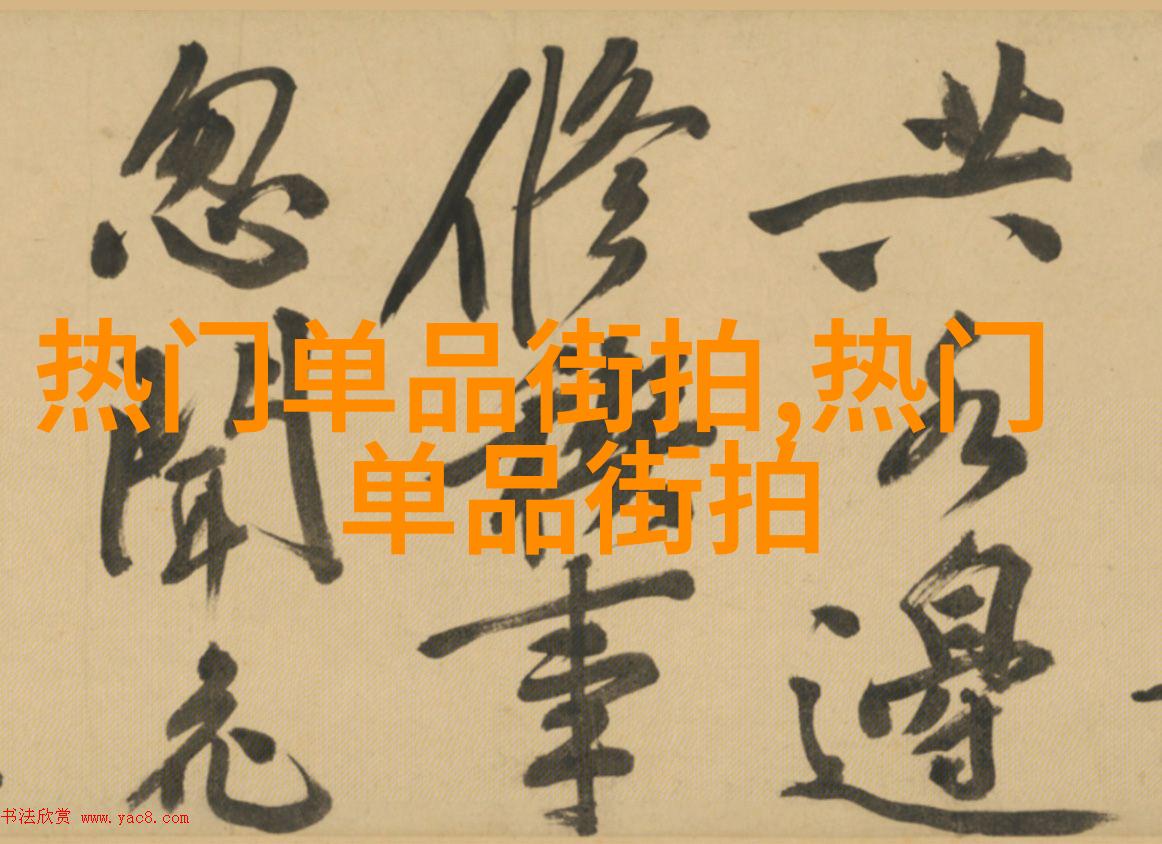 热门单品街拍,热门
单品街拍
共水邊
修禊事
忽聞花
书法欣赏 www.yac8.com